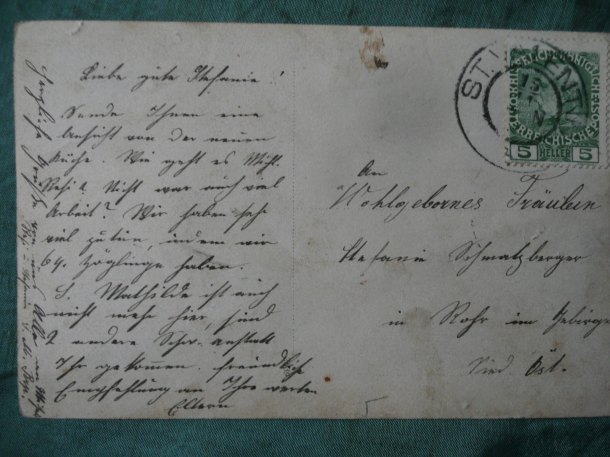 Liebe gute Stefanie!
Sende Ihnen eine
Ansicht von der neuen
Küche. Wie geht es
Nicht war auch viel
Arbeit? Wir haben sehr
viel zu tun, indem wir
64 Zöglinge haben.
S. Mathilde ist auch
nicht mehr hier, sind
2 andere Schw. anstatt
Ihr gekomen. Freundliche
Empfehlung an Ihre werten
Eltern
Herzliche Grüße von uns Allen
ST. VALENTIN
5 HELLER 5
An
Wohlgebornes Fräulein
Stefanie Schmatzberger
in Rohr im Gebirge
Nied Öst.
5